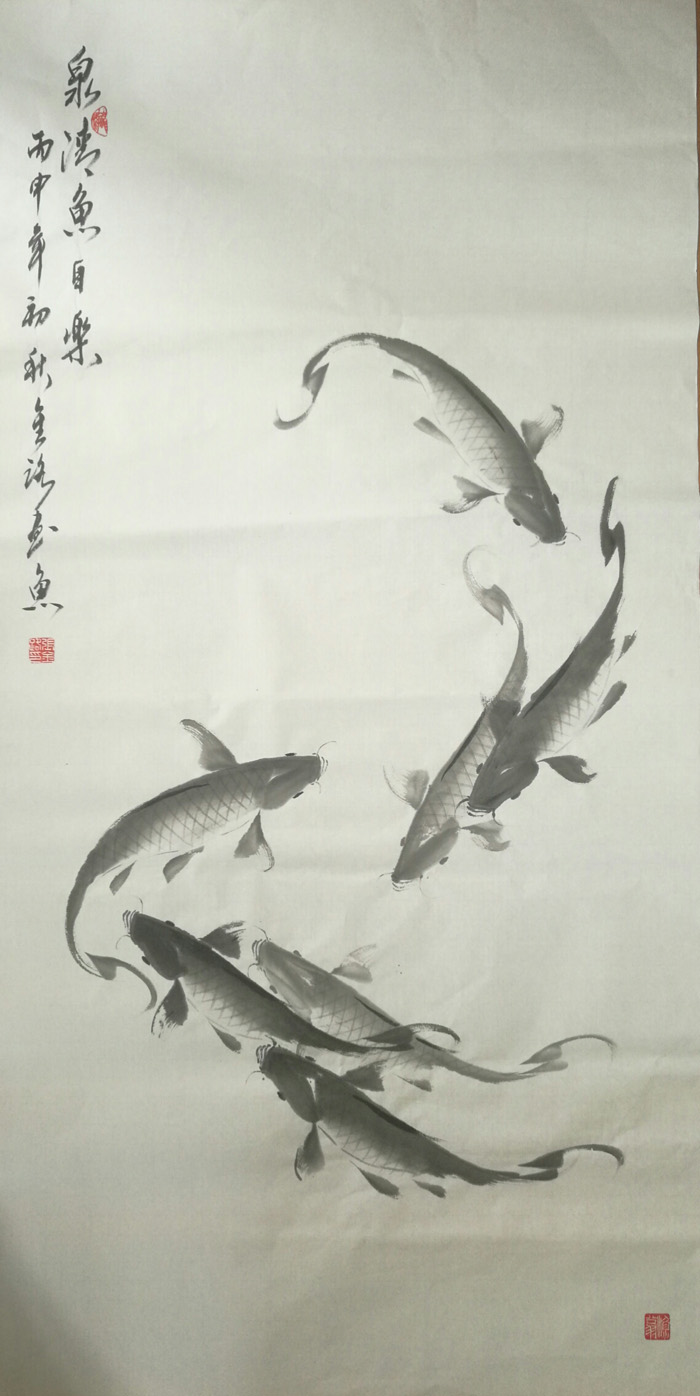 泉清魚自樂
丙申年初秋金路画魚